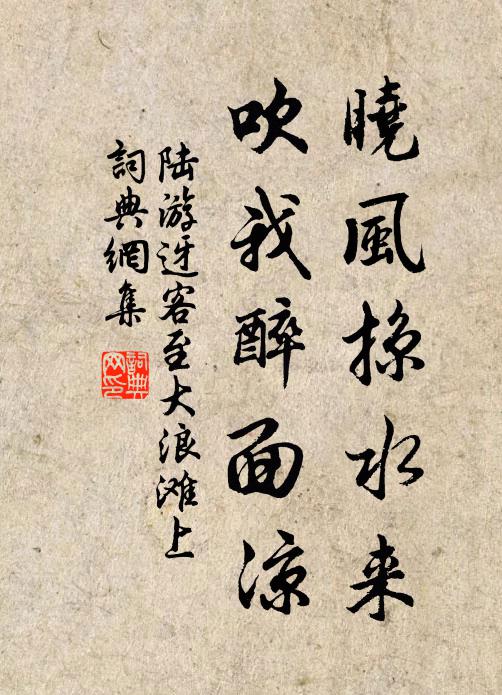 曉風掠水來
吹我醉面涼
陆游迓客至大浪滩上
詞典網集
詞典
网印